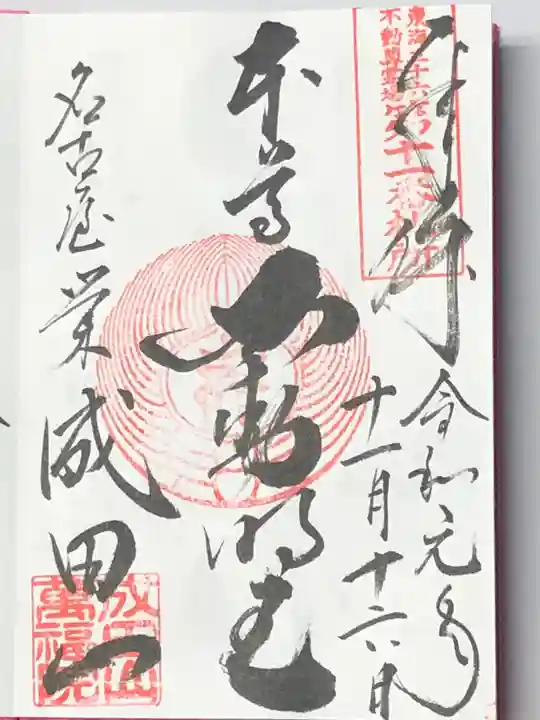 奉拝
東海三十六不動尊霊場第十一番札所
令和元年
十一月十六日
本尊
不動明王
名古屋栄
成田山
成田山
萬福院